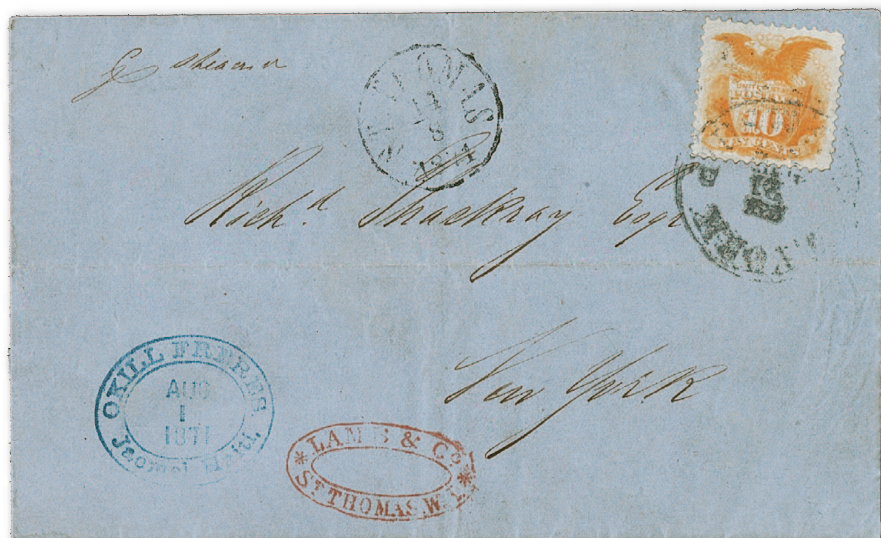 pr steamer
ST. THOMAS
14
8
1871
10
Rich.d Thackray Esqr
YORK
New York
OKILL FRERES
AUG
1
1871
Jacmel Haïti
* LAMB & Co *
ST THOMAS. W. I.